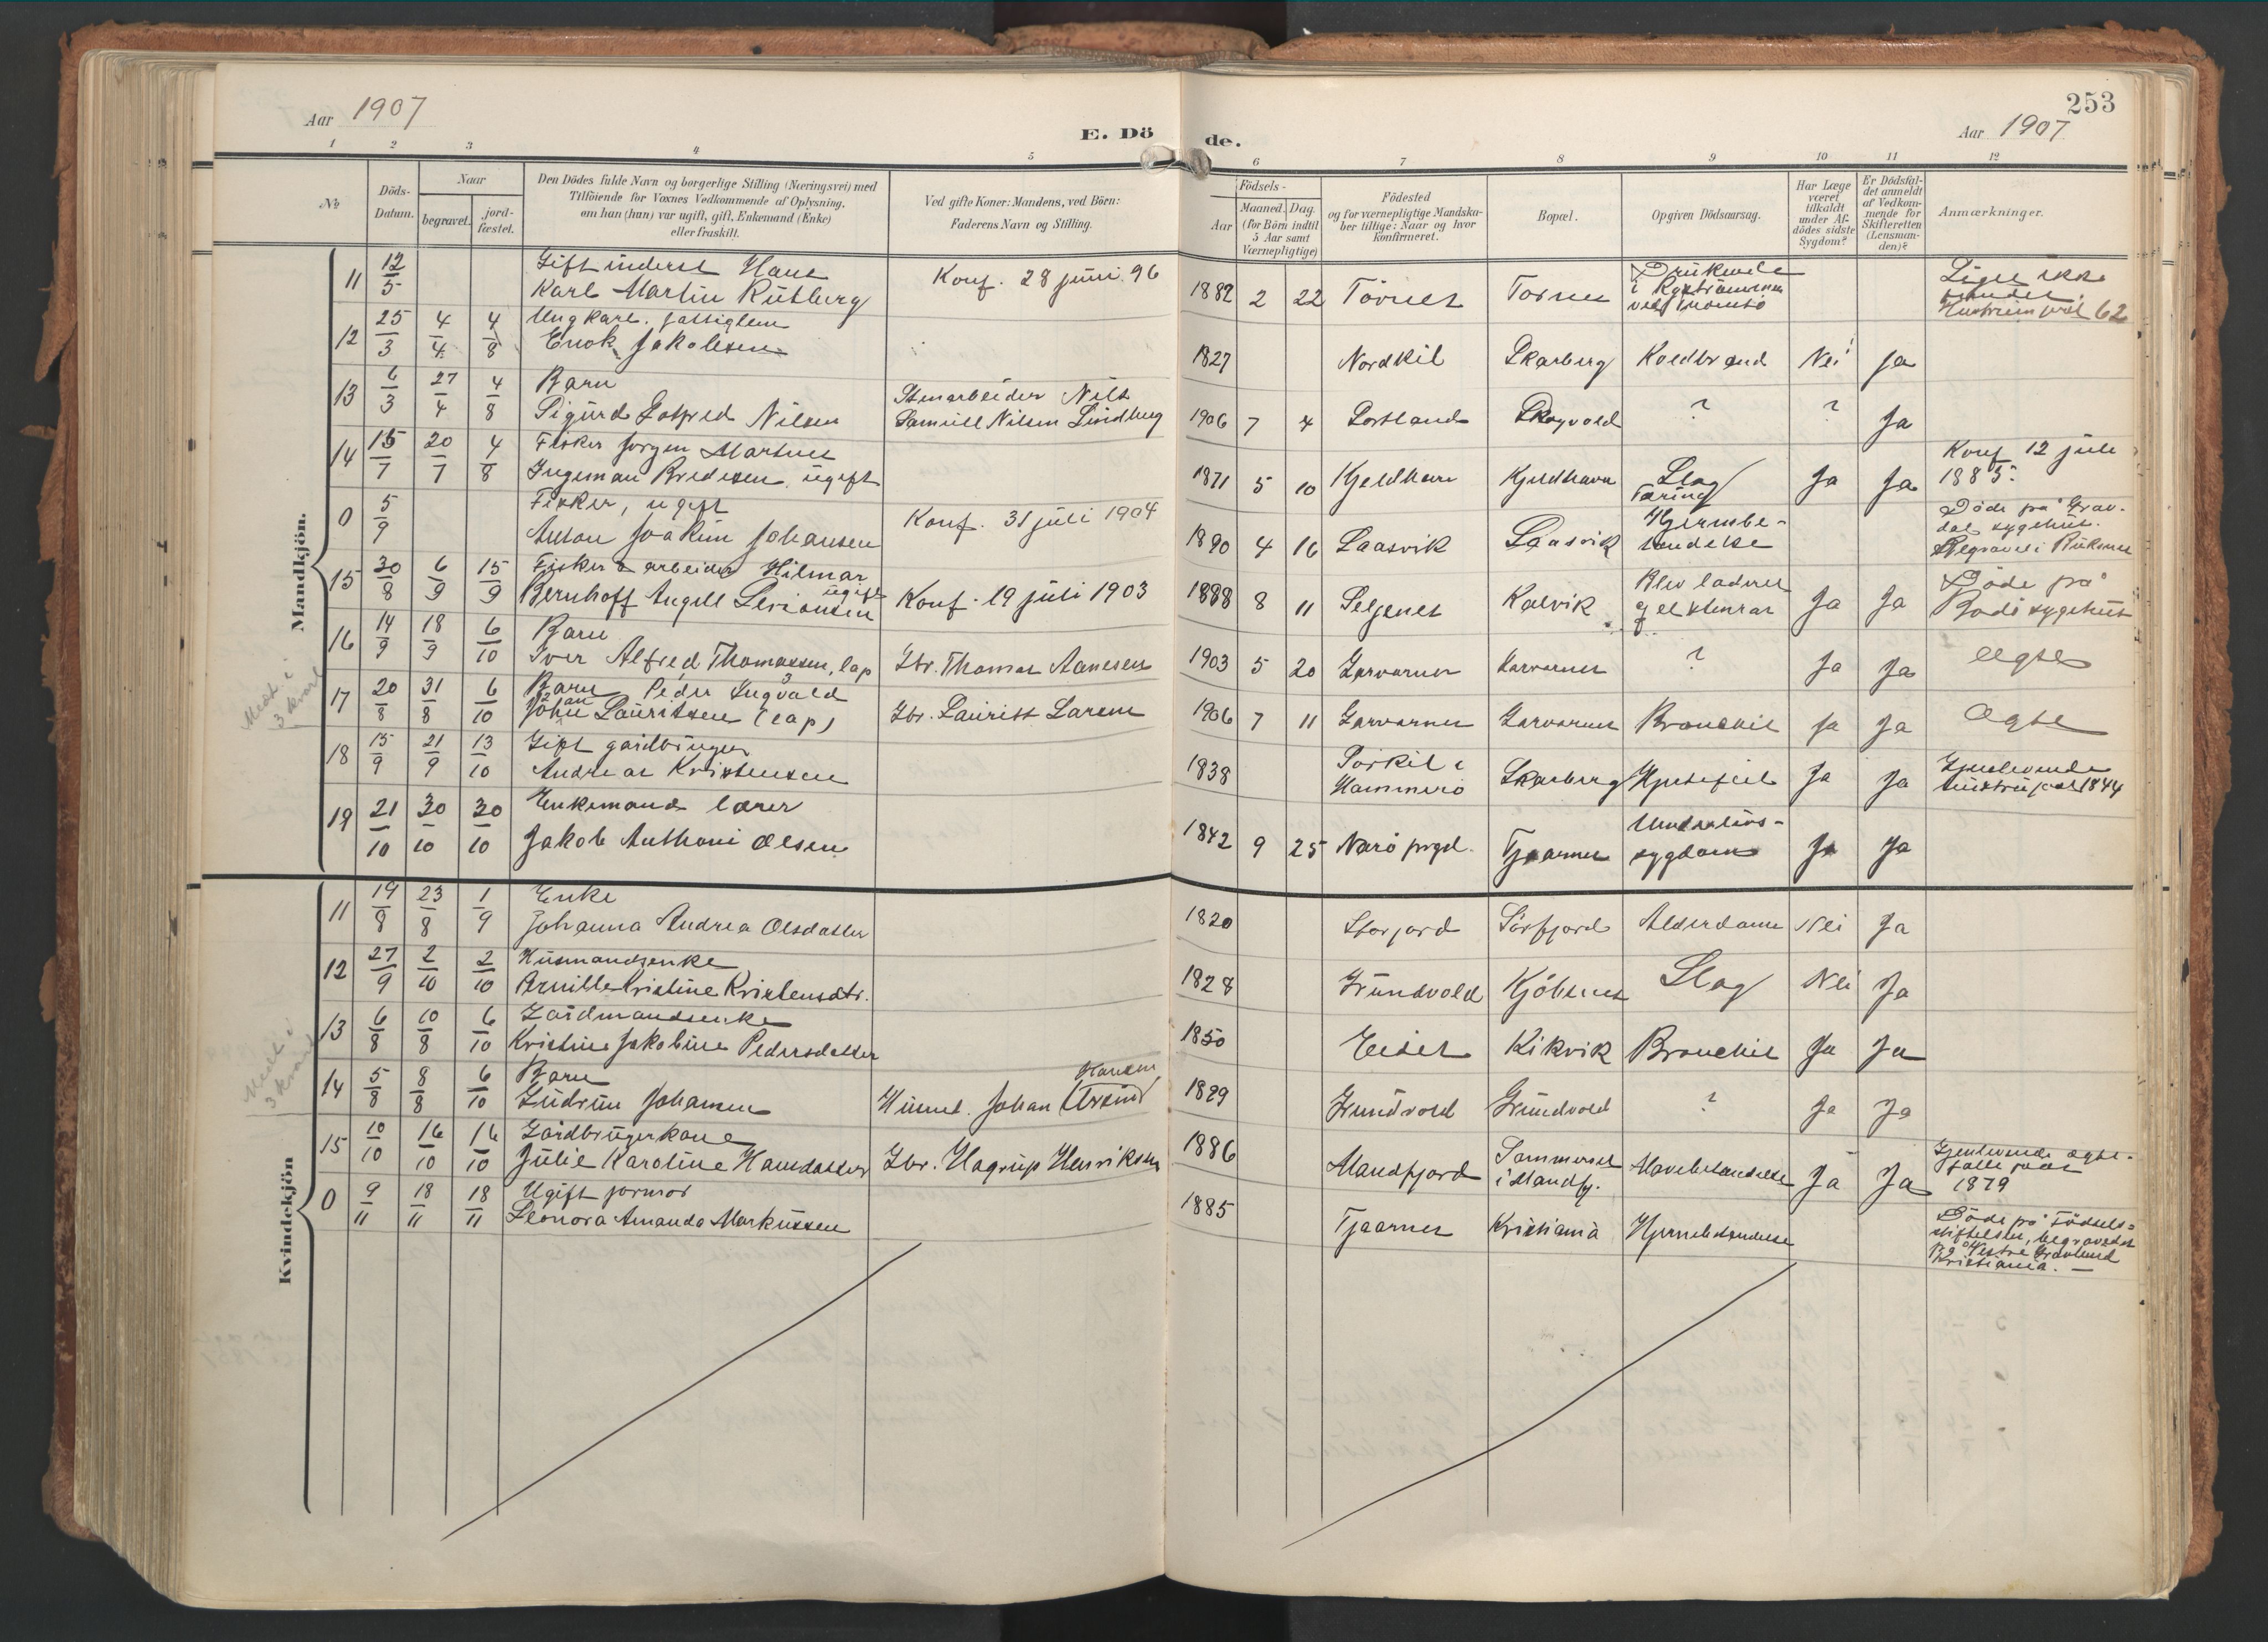 Aar 1907
E. Dö
de.
253
Aar 1907
1 2 3 4 5 6 7 8 9 10 11 12
No
Döds-Datum.
Naar
begravet.
jord-fæstet.
Den Dödes fulde Navn og borgerlige Stilling (Næringsvei) med
Tilföiende for Voxnes Vedkommende af Oplysning,
om han (hun) var ugift, gift, Enkemand (Enke)
eller fraskilt.
Ved gifte Koner: Mandens, ved Börn:
Faderens Navn og Stilling.
Födsels-
Aar
Maaned. Dag.
(for Börn indtil
5 Aar samt
Værnepligtige)
Födested
og for værnepligtige Mandska-
ber tillige: Naar og hvor
konfirmeret.
Bopæl.
Opgiven Dödsaarsag.
Har Læge
været
tilkaldt
under Af-
dödes sidste
Sygdom?
Er Dödsfal-
det anmeldt
af Vedkom-
mende for
Skifteretten
(Lensman-
den)?
Anmærkninger.
Mandkjön.
11 12/5 Gift inderst Hans
Karl Martin Rutberg Konf. 28 juni 96 1882 2 22 Törnes Tornes Druknede
i
ved Tromsö
Liget ikke
fundet.
62
12 25/3 4/4 4/8 Ungkarl. fattiglem
Enok Jakobsen 1827 Nordkil Skarberg Koldbrand Nei Ja
13 6/3 27/4 4/8 Barn
Sigurd Gotfred Nilsen
Stenarbeider Nils
Samuel Nilsen Lindberg 1906 7 4 Skogvold ? ? Ja
14 15/7 20/7 4/8 Fisker Jørgen Martner
Ingeman Bredesen, ugift 1871 5 10 Kjeldhavn Kjeldhavn Slag
Tæring
Ja Ja Konf 12 juli
1885.
0 5/9 Fisker, ugift
Anton Joakim Johansen Konf. 31 juli 1904 1890 4 16 Laasvik Laasvik Hjernebe-
tændelse
Döde på Grav-
dal sygehus.
Begravet i
15 30/8 6/9 15/9 Fisker & arbeider Hilmar
Bernhoff Angell Sivertsen ugift Konf. 19 juli 1903 1888 8 11 Seljenes Kalvik Blev
Ja Ja Döde på
Bodö sygehus
16 14/9 18/9 6/10 Barn
Iver Alfred Thomassen, lap Gbr. Thomas Aanesen 1903 5 20 Korvarnes ? Ja Ja ægte
17 20/8 31/8 6/10 Barn Peder Ingvald
Johan Lauritsen (lap) Gbr. Laurits Larsen 1906 7 11 Bronchit Ja Ja Ægte
18 15/9 21/9 13/10 Gift gaardbruger
Andreas Kristensen 1838 Porkil i
Hammerö Skarberg Hjertefeil Ja Ja Gjenlevende
1844
19 21/10 30/10 30/10 Enkemand lærer
Jakob Anthoni Olsen 1842 9 25 Narö prgd. Tjaarnes Underlivs-
sygdom Ja Ja
Medt. i
3 kvart
Kvindekjön
11 19/8 23/8 1/9 Enke
Johanna Andrea Olsdatter 1820 Storjord Sörfjord Alderdom Nei Ja
12 27/9 2/10 2/10 Husmandsenke
Pernille Kristine Kristensdtr. 1828 Grundvold Kjöbsnes Slag Nei Ja
13 6/8 10/8 6/10 Gaardmandsenke
Kristine Jakobine Pedersdatter 1850 Eidet Kikvik Bronchit Ja Ja
14 5/8 8/8 6/10 Barn
Gudrun Johansen
Husmd. Johan Hansen 1899 Grundvold Grundvold ? Ja Ja
15 10/10 16/10 16/10 Gaardbrugerkone
Julie Karoline Hansdatter Gbr. Hagrup Henriksen 1886 Mandfjord Sommerset
i Mandfj. Mavebetændelse Ja Ja Gjenlevende ægte-
fælle født
1879
0 9/11 18/11 18/11 Ugift jormor
Leonora Amanda Markussen 1885 Tjaarnes Kristiania Hjernebetændelse
Döde på Födsels-
stiftelsen, begravedes
på Vestre Gravlund
Kristiania. —
Medt. i
3 kvart